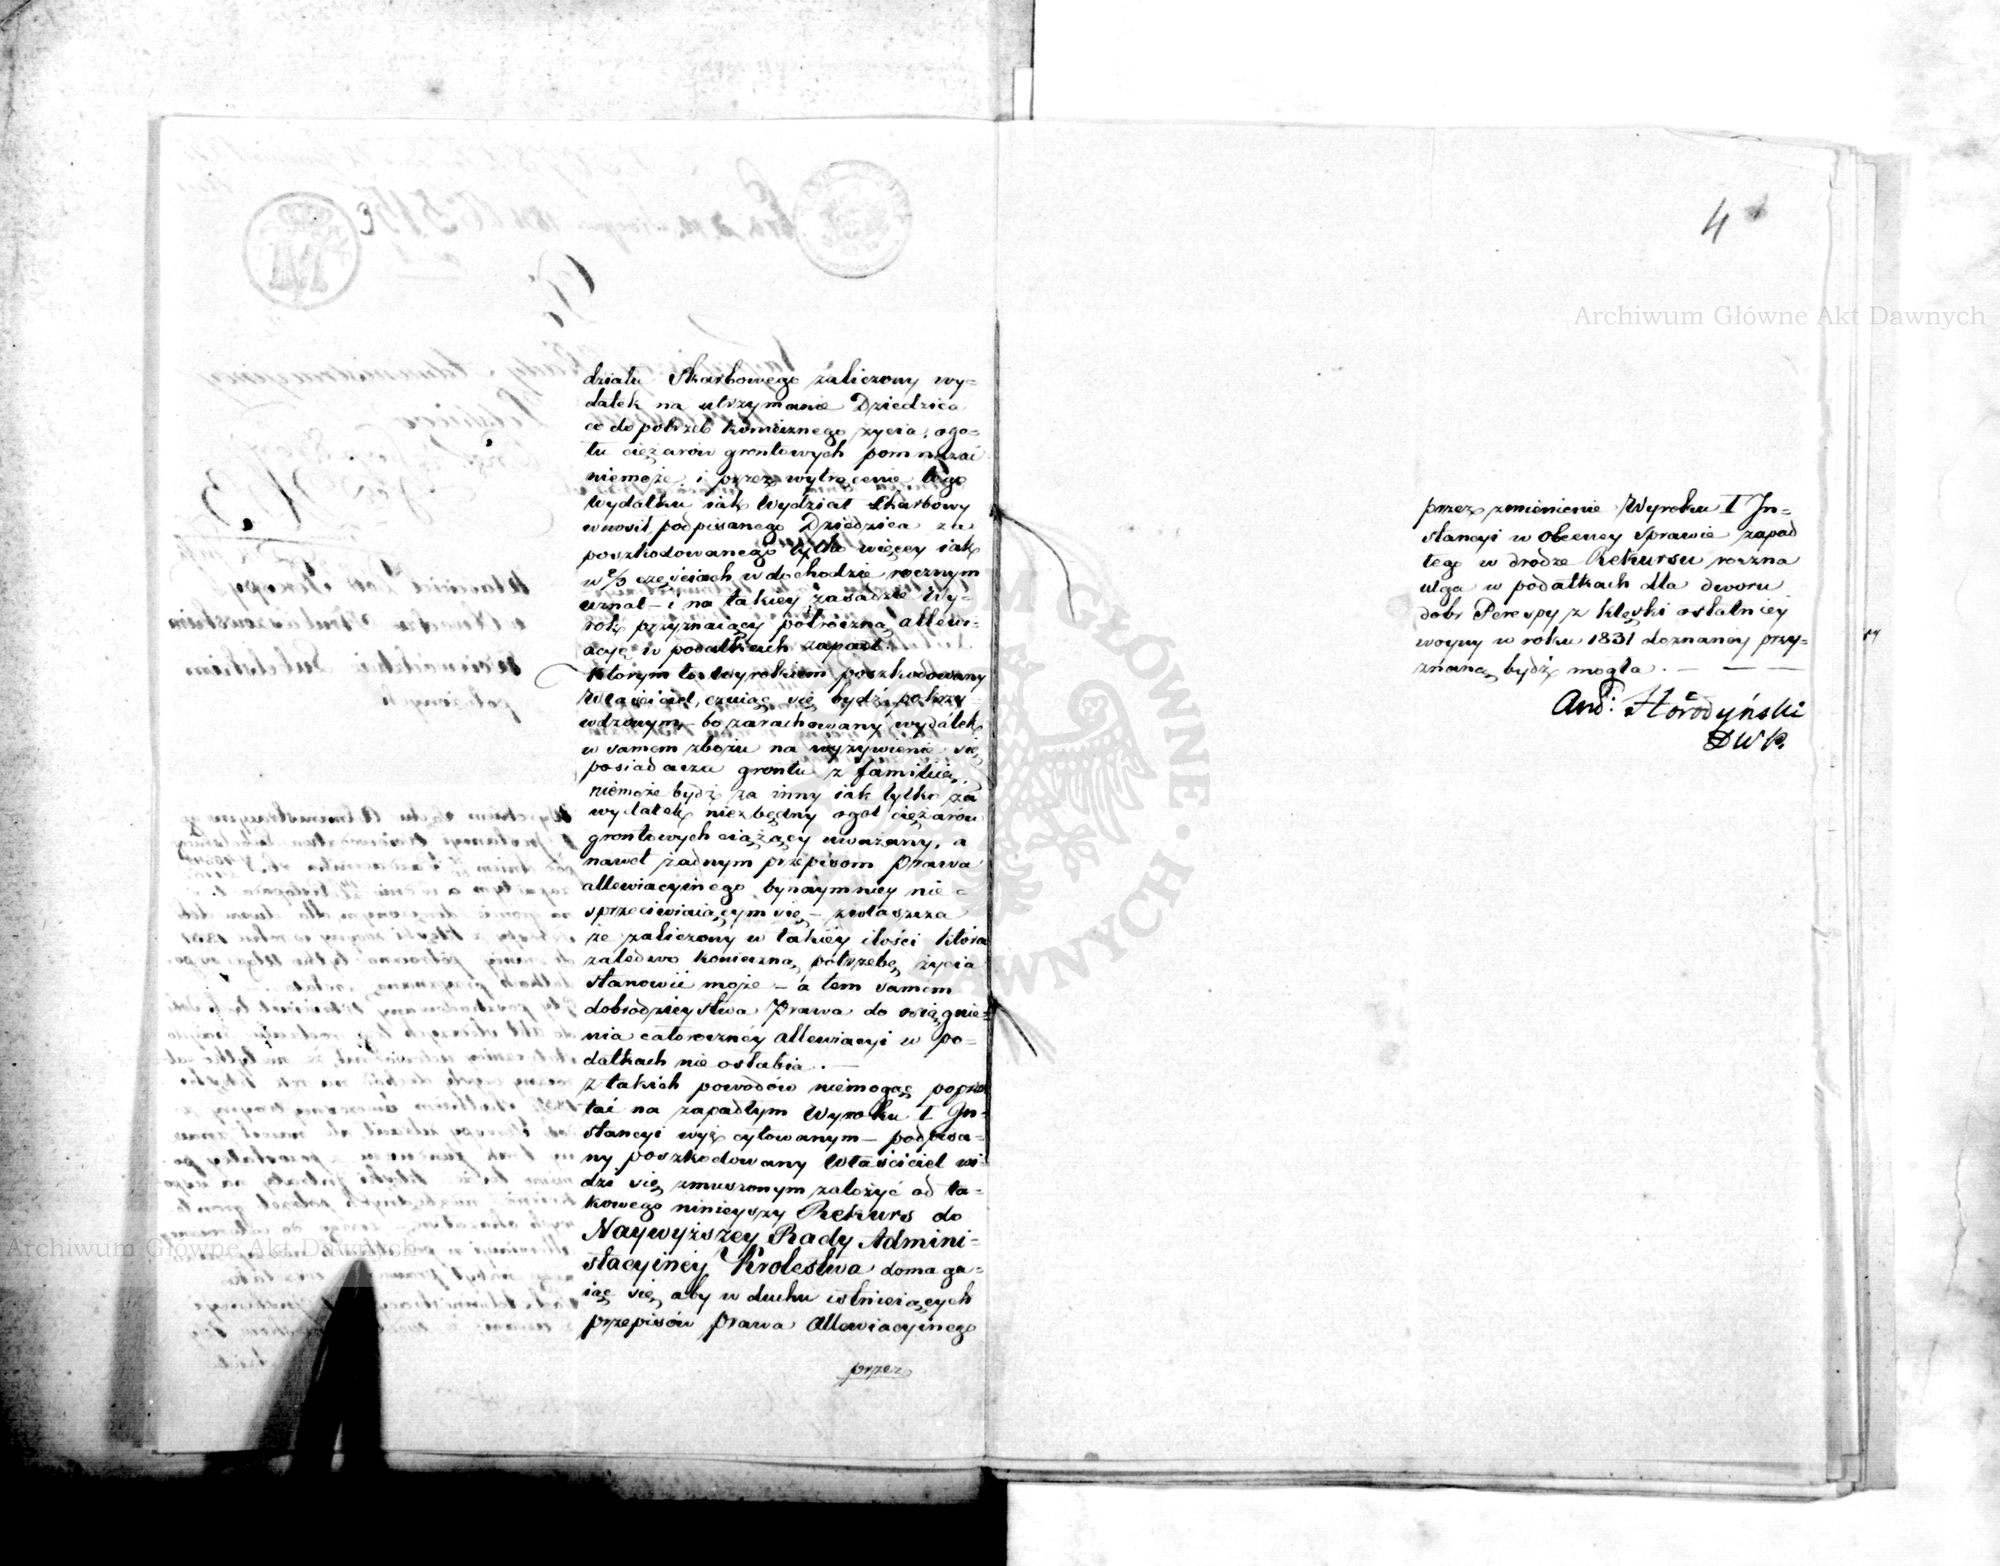 działu Skarbowego zaliczony wy-
datek na utrzymanie Dziedzica
co do potrzeb koniecznego życia, ogo-
łu ciężarów grontowych pomnażać
niemoże, i przez wytrącenie tego
Wydatku iak Wydział Skarbowy
wnosił podpisanego Dziedzica za
poszkodowanego tylko więcey iak
w 2/3 częściach w dochodzie rocznym
uznał – i na takiey zasadzie Wy-
rok przyznaiący półroczną allewi-
acyę w podatkach zapadł.
Którym to Wyrokiem poszkodowany
Właściciel, czuiąc się bydź pokrzy-
wdzonym – bo zarachowany wydatek
w samem zbożu na wyżywienie się
posiadacza grontu z familią,
niemoże bydź za inny iak tylko za
wydatek niezbędny ogół ciężarów
grontowych ciążący uważany, a
nawet żadnym przepisom prawa
allewiacyinego bynaymniey nie -
sprzeciwiaiącym się – zwłaszcza
że zaliczony w takiey ilości która
zaledwo konieczną potrzebę życia
stanowić może – a tem samem
dobrodzieystwa Prawa do osiągnie-
nia całoroczney allewiacyi w po-
datkach nie osłabia. —
Z takich powodów niemogąc poprze-
tać na zapadłym Wyroku I In-
stancyi wyż cytowanym – podpisa-
ny poszkodowany Właściciel wi-
dzi się zmuszonym założyć od ta-
kowego ninieyszy Rekurs do
Naywyższey Rady Admini-
stacyiney Krolestwa domaga-
iąc się, aby w duchu istnieiących
przepisów prawa Allewiacyinego
przez
4
przez zmienienie Wyroku I In-
stancyi w obecney sprawie zapad
tego w drodze Rekursu roczna
ulga w podatkach dla dworu
dobr Perespy z klęski ostatniey
woyny w roku 1831 doznaney przy-
znaną bydź mogła. — — —
And: Horodyński
DWP.
Archiwum Główne Akt Dawnych
Archiwum Główne Akt Dawnych